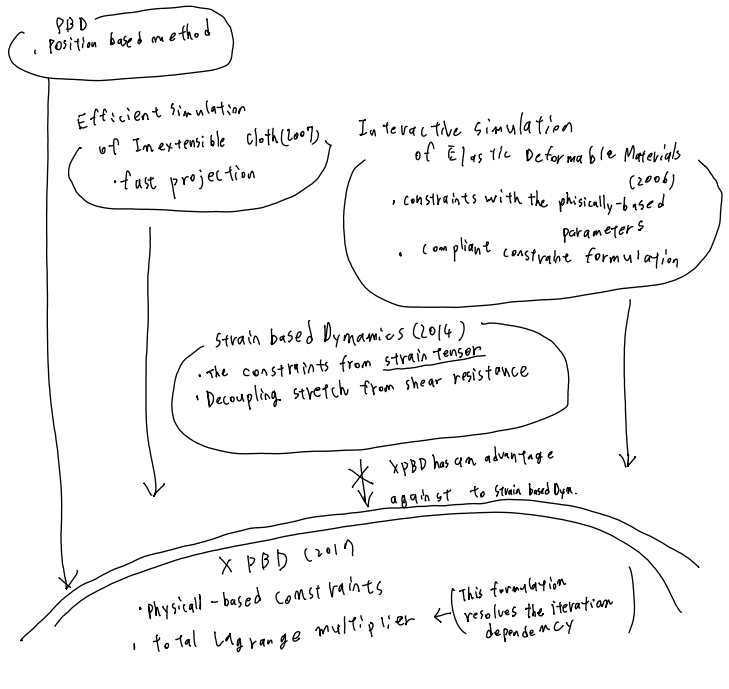 PBD
· Position based method
Efficient simulation
of Inextensible Cloth(2007)
· fast projection
Interactive simulation
of Elastic Deformable Materials
(2006)
· constraints with the phisically-based
parameters
· compliant constraint formulation
Strain based Dynamics (2014)
· The constraints from strain tensor
· Decoupling stretch from shear resistance
XPBD has an advantage
against to strain based Dyn.
XPBD (2017
· Physicall-based constraints
· total Lagrange multiplier ← (This formulation
resolves the iteration
dependency)